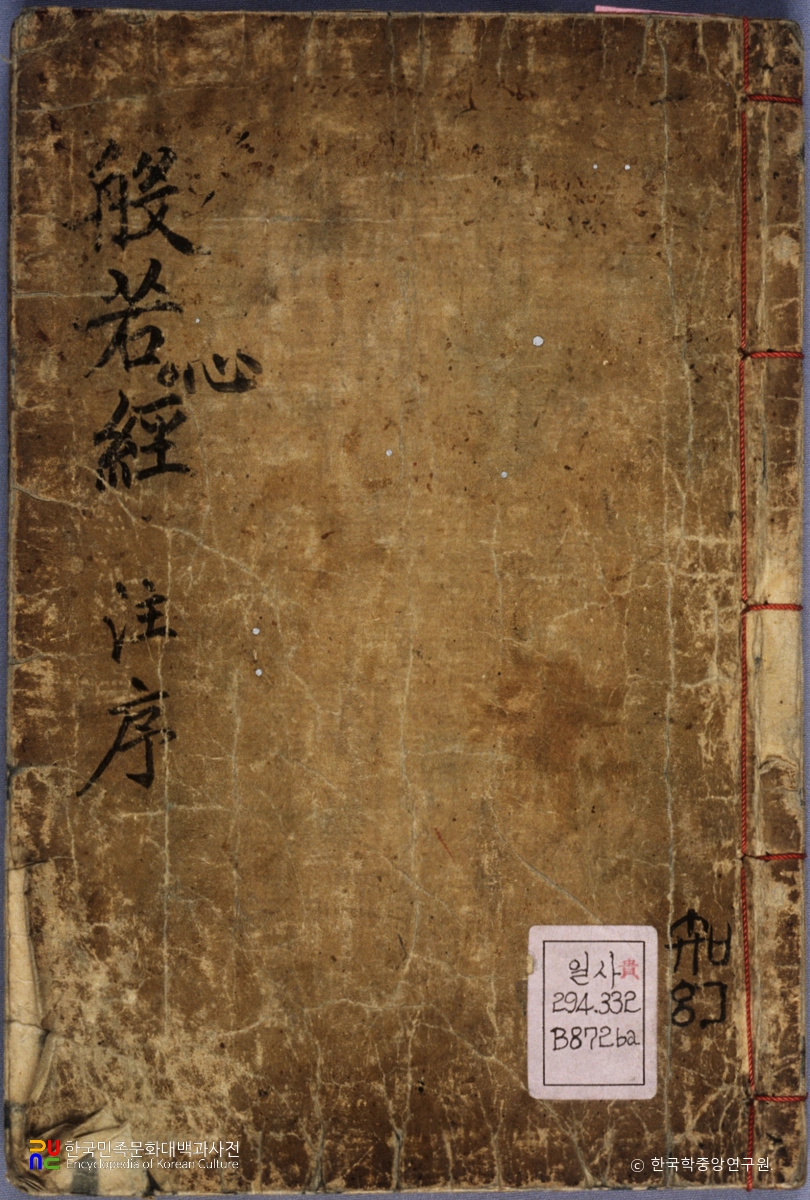 般若心經 注序
일사 貴
294.332
B872ba
한국민족문화대백과사전
Encyclopedia of Korean Culture
© 한국학중앙연구원